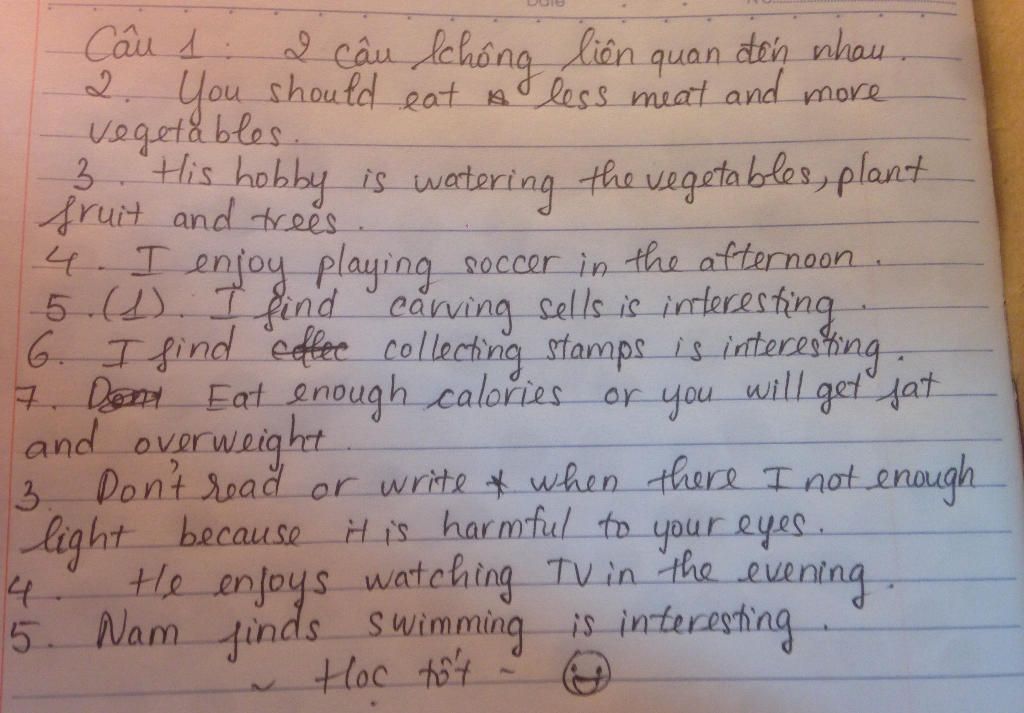 Câu 1 : 2 câu không liên quan đến nhau.
2. You should eat less meat and more
vegetables.
3. His hobby is watering the vegetables, plant
fruit and trees.
4. I enjoy playing soccer in the afternoon.
5.(1). I find carving sells is interesting.
6. I find collecting stamps is interesting.
7. Eat enough calories or you will get fat
and overweight.
3. Don't read or write when there I not enough
light because it is harmful to your eyes.
4. He enjoys watching TV in the evening.
5. Nam finds swimming is interesting.
~ Học tốt ~